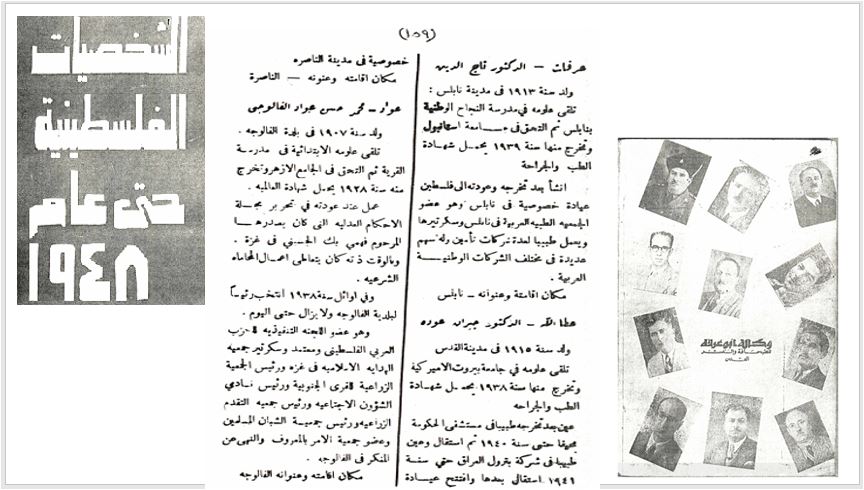 الشخصيات
الفلسطينية
حتى عام
١٩٤٨
(١٥٩)
عرفات – الدكتور تاج الدين
ولد سنة ١٩١٣ فى مدينة نابلس :
تلقى علومه في مدرسة النجاح الوطنية
بنابلس ثم التحق فى جامعة استانبول
وتخرج منها سنة ١٩٣٩ يحمل شهادة
الطب والجراحة
انشأ بعد تخرجه وعودته الى فلسطين
عيادة خصوصية فى نابلس وهو عضو
الجمعيه الطبيه العربية فى نابلس وسكرتيرها
ويعمل طبيبا لعدة شركات تأمين وله سهم
عديدة فى مختلف الشركات الوطنية
العربية .
مكان اقامتة وعنوانه – نابلس
عطا الله – الدكتور جبران عوده
ولد سنة ١٩١٥ فى مدينة القدس
تلقى علومه في جامعة بيروت الاميركية
وتخرج منها سنة ١٩٣٨ يحمل شهادة
الطب والجراحه
عين بعد تخرجه طبيبا فى مستشفى الحكومة
بحيفا حتى سنة ١٩٤٠ ثم استقال وعين
طبيبا فى شركة بترول العراق حتي سنة
١٩٤٦ استقال بعدها وافتتح عيادة
خصوصية فى مدينة الناصره
مكان اقامته وعنونه – الناصرة
عواد – محمد حسن عواد الفالوجى
ولد سنة ١٩٠٧ فى بلدة الفالوجه .
تلقى علومه الابتدائية فى مدرسة
القرية ثم التحق فى الجامع الازهر وتخرج
منه سنة ١٩٢٨ يحمل شهادة العالميه .
عمل عند عودته في تحرير مجلة
الاحكام العدليه التى كان يصدرها
المرحوم فهمي بك الحسيني فى غزة .
وبالوقت ذته كان يتعاطى اعمال المحاماه
الشرعيه .
وفي اوائل سنة ١٩٣٨ انتخب رئيساً
لبلدية الفالوجه ولا يزال حتى اليوم .
وهو عضو اللجنه التنفيذيه للحزب
العربي الفلسطيني ومعتمد وسكرتير جمعيه
الهدايه الاسلاميه فى غزه ورئيس الجمعية
الزراعية لقرى الجنوبية ورئيس نادي
الشؤون الاجتماعيه ورئيس جمعيه التقدم
الزراعيه ورئيس جمعية الشبان المسلمين
وعضو جمعية الامر بالمعروف والنهى عن
المنكر فى الفالوجه .
مكان اقامته وعنوانه الفالوجه
وكالة ابو عرفة
القدس